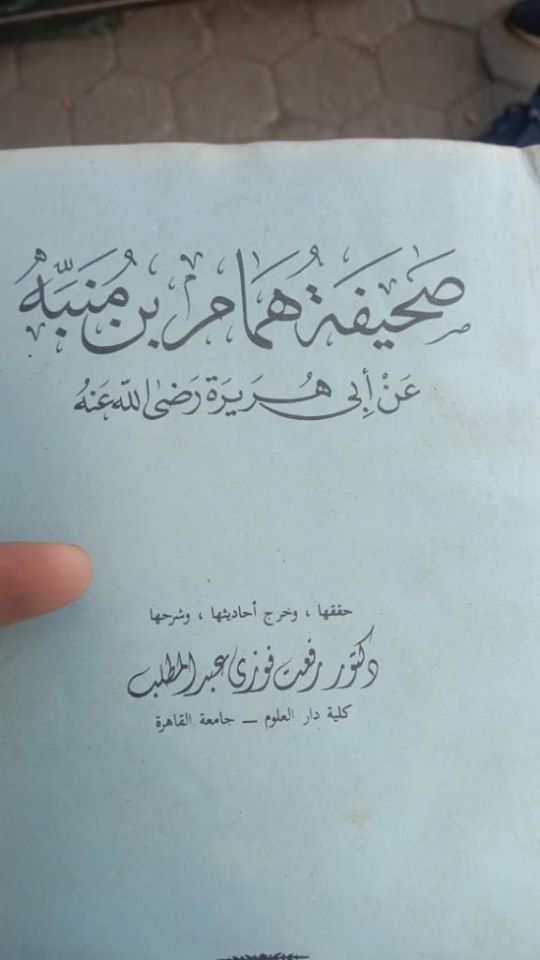 صَحِيفَة هُمَام بن مُنَبِّهُ
عَنْ أَبِى هُرَيرَة رَضَى اللّٰه عَنهُ
حققها ، وخرج أحاديثها ، وشرحها
دكتور رفعت فوزى عبد المطلب
كلية دار العلوم ــ جامعة القاهرة